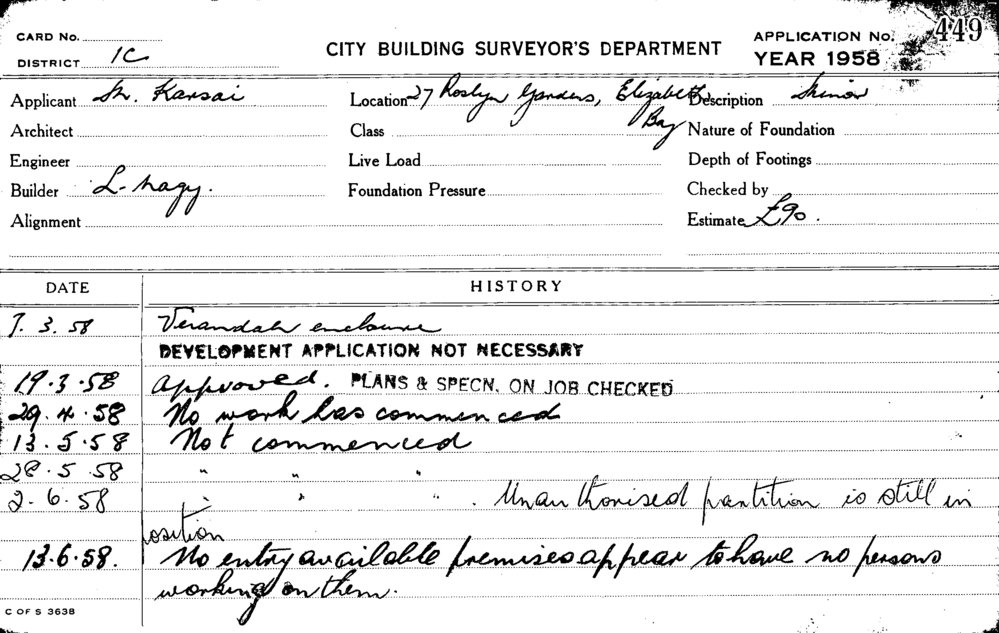 CARD No.
DISTRICT 1C
CITY BUILDING SURVEYOR'S DEPARTMENT
APPLICATION No. 449
YEAR 1958
Applicant Kansai
Location 27 Roslyn Gardens, Elizabeth Bay
Description
Architect
Class
Nature of Foundation
Engineer
Live Load
Depth of Footings
Builder L. Nagy.
Foundation Pressure
Checked by
Alignment
Estimate £90.
DATE HISTORY
7. 3. 58 Verandah enclosure
DEVELOPMENT APPLICATION NOT NECESSARY
19.3.58 Approved. PLANS & SPECN. ON JOB CHECKED
29.4.58 No work has commenced
13.5.58 Not commenced
28.5.58 " " "
2.6.58 " " " . Unauthorised partition is still in
position
13.6.58. No entry available premises appear to have no persons
working on them.
C OF S 3638